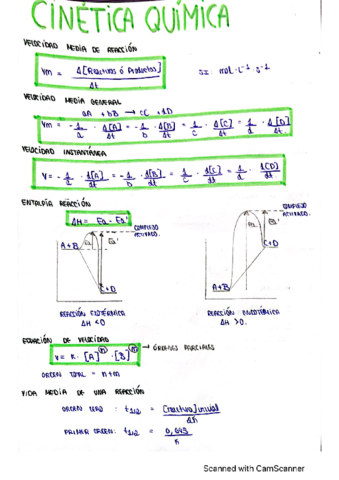 CINÉTICA QUÍMICA
VELOCIDAD MEDIA DE REACCIÓN
Vm = Δ[Reactivos ó Productos] / Δt
SI: mol·L⁻¹·s⁻¹
VELOCIDAD MEDIA GENERAL
aA + bB → cC + dD
Vm = - 1/a · Δ[A]/Δt = - 1/b · Δ[B]/Δt = 1/c · Δ[C]/Δt = 1/d · Δ[D]/Δt
VELOCIDAD INSTANTÁNEA
V = - 1/a · d[A]/dt = - 1/b · d[B]/dt = 1/c · d[C]/dt = 1/d · d[D]/dt
ENTALPÍA REACCIÓN
ΔH = Ea - Ea'
COMPLEJO ACTIVADO.
Ea Ea'
A+B
C+D
REACCIÓN EXOTÉRMICA
ΔH < 0
COMPLEJO ACTIVADO.
Ea Ea'
C+D
A+B
REACCIÓN ENDOTÉRMICA
ΔH > 0.
ECUACIÓN DE VELOCIDAD
V = K · [A]ⁿ · [B]ᵐ → ÓRDENES PARCIALES
ORDEN TOTAL = n+m
VIDA MEDIA DE UNA REACCIÓN
ORDEN CERO : t1/2 = [reactivo]inicial
PRIMER ORDEN: t1/2 = 0,693 / K
Scanned with CamScanner